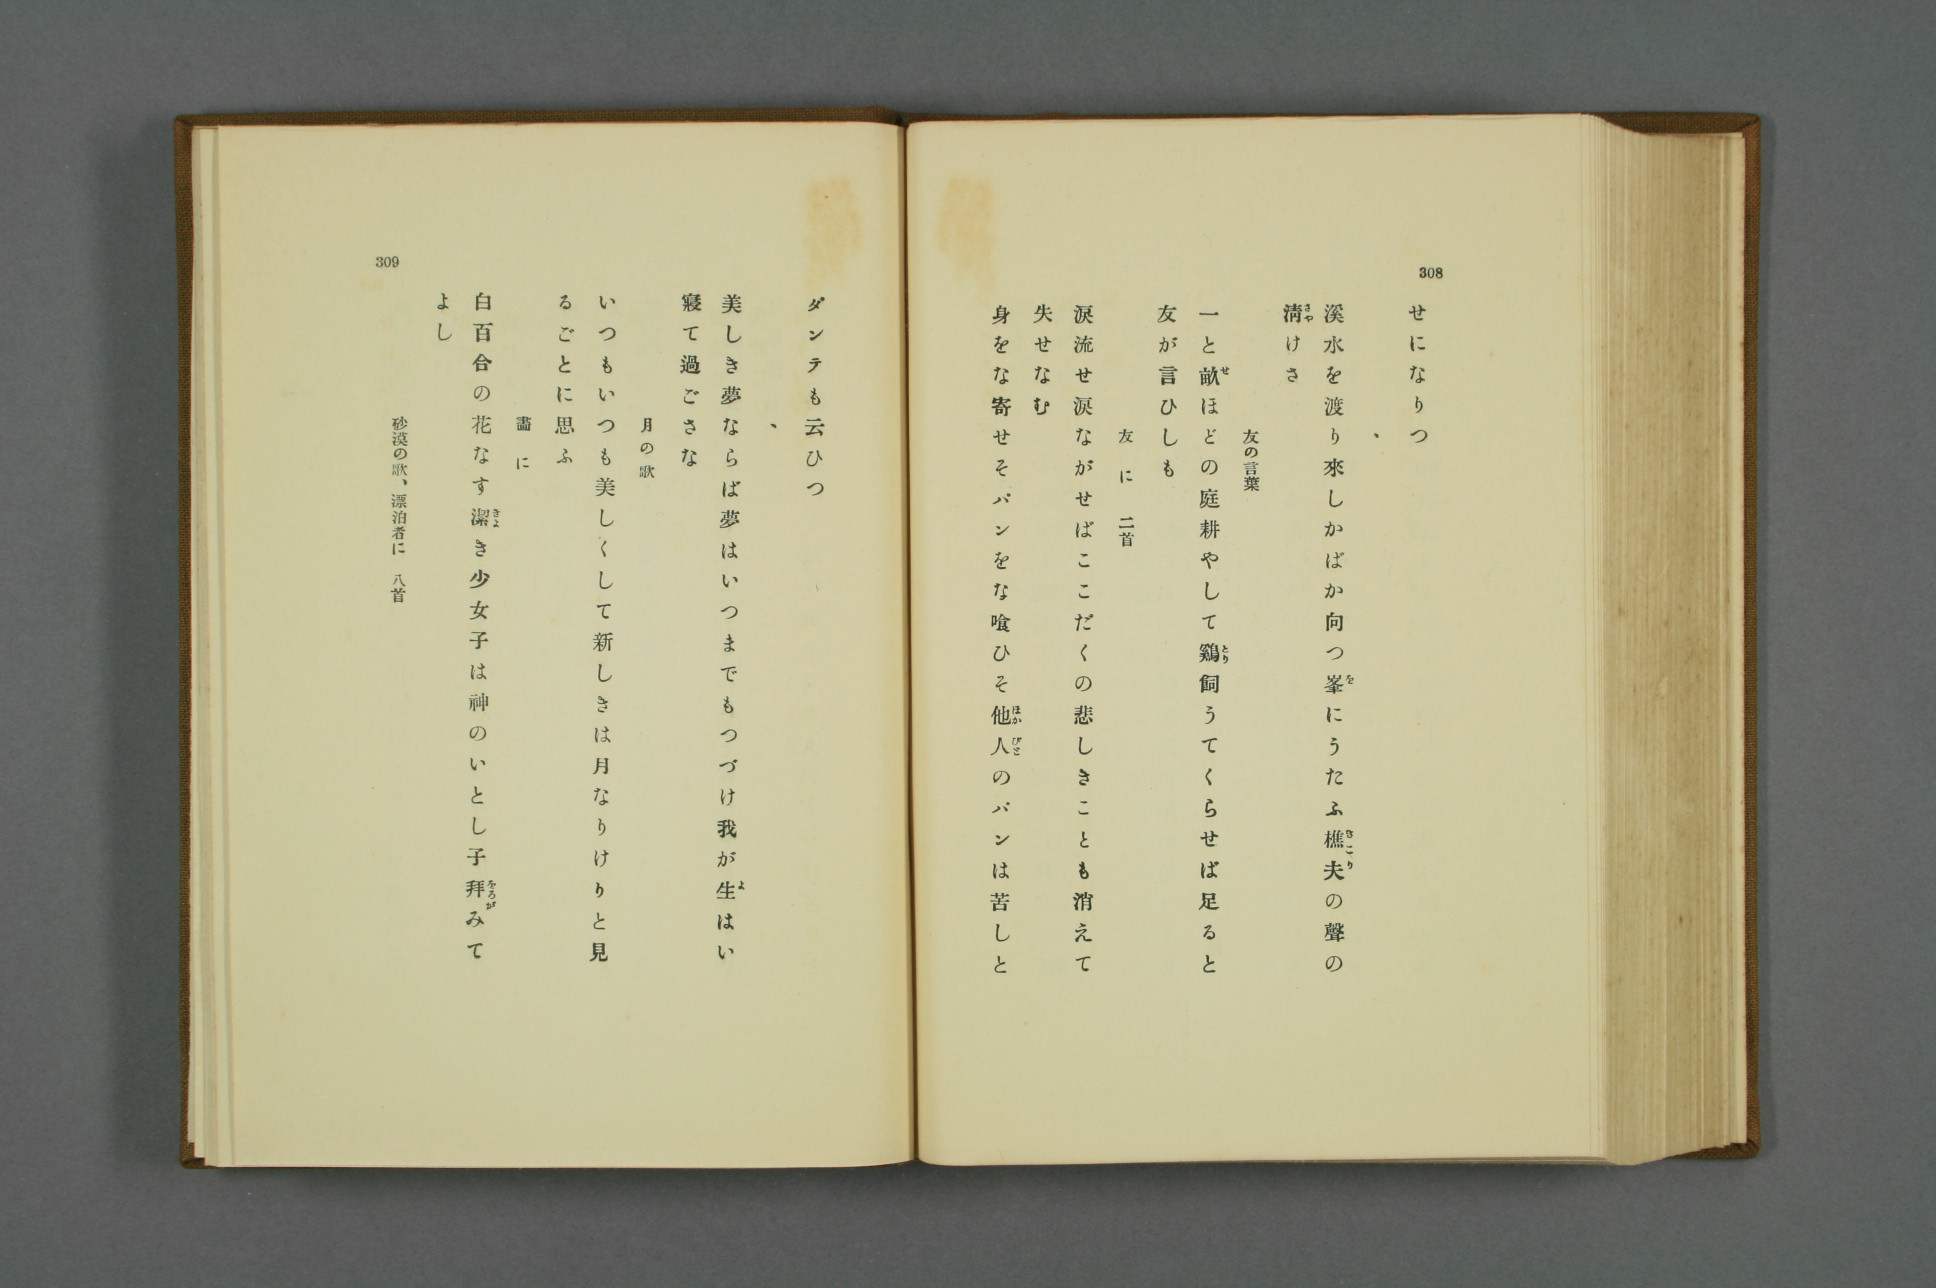 308
せになりつ
、
溪水を渡り來しかばか向つ峯にうたふ樵夫の聲の
淸けさ
友の言葉
一と畝ほどの庭耕やして鷄飼うてくらせば足ると
友が言ひしも
友に 二首
淚流せ淚ながせばここだくの悲しきことも消えて
失せなむ
身をな寄せそパンをな喰ひそ他人のパンは苦しと
309
ダンテも云ひつ
、
美しき夢ならば夢はいつまでもつづけ我が生はい
寢て過ごさな
月の歌
いつもいつも美しくして新しきは月なりけりと見
るごとに思ふ
畵に
白百合の花なす潔き少女子は神のいとし子拜みて
よし
砂漠の歌、漂泊者に 八首